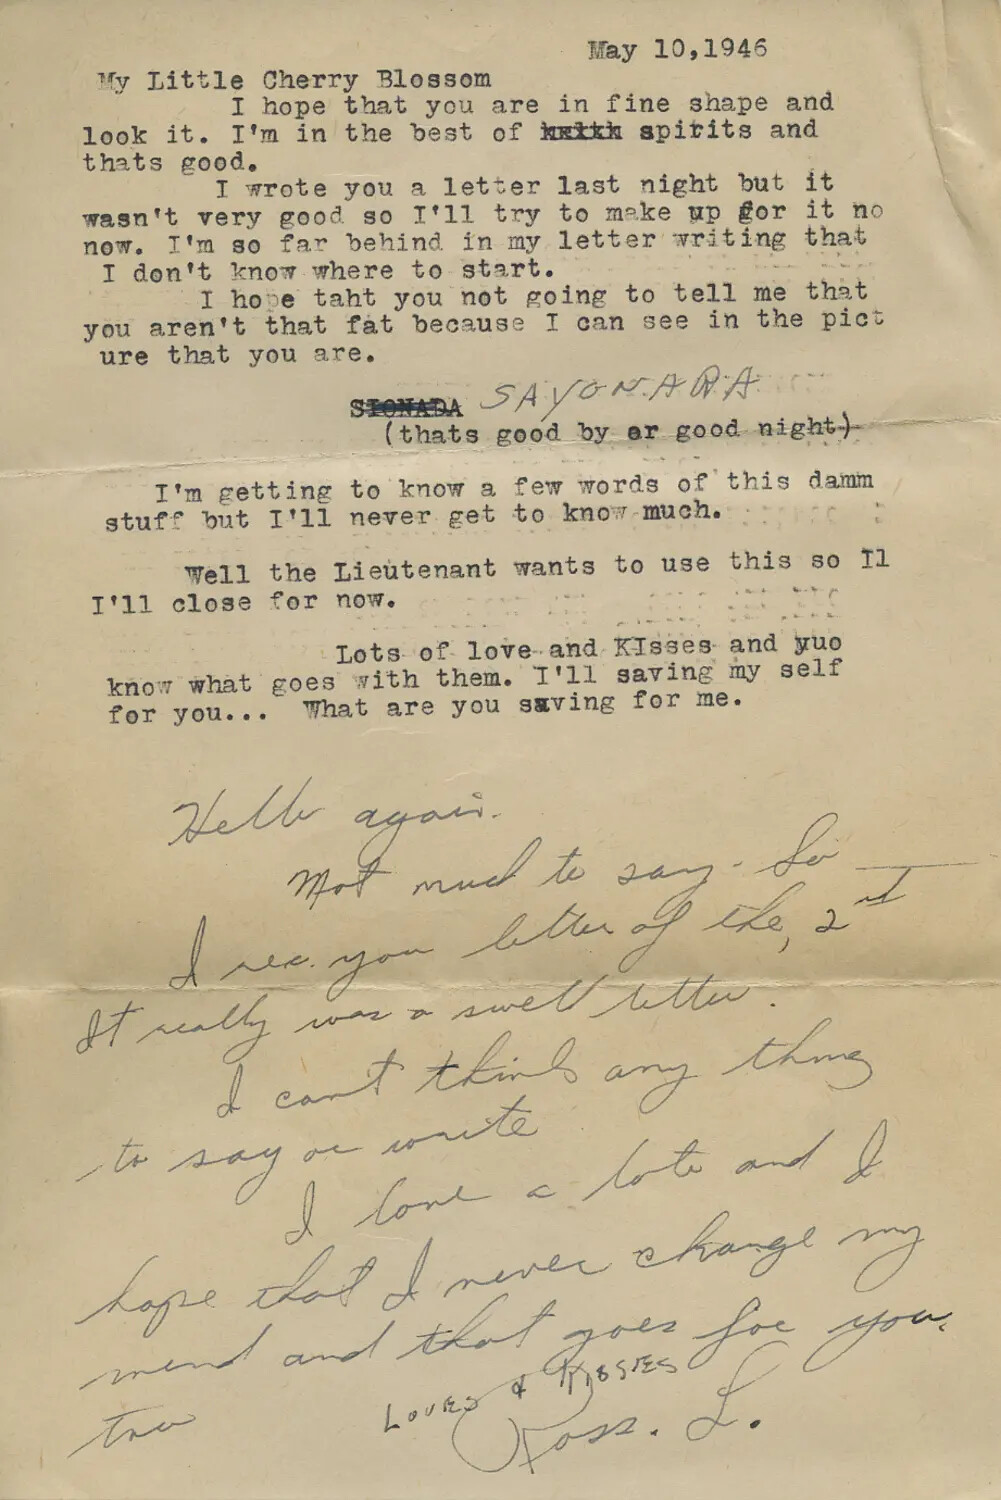 May 10,1946
My Little Cherry Blossom
I hope that you are in fine shape and
look it. I'm in the best of spirits and
thats good.
I wrote you a letter last night but it
wasn't very good so I'll try to make up for it no
now. I'm so far behind in my letter writing that
I don't know where to start.
I hope taht you not going to tell me that
you aren't that fat because I can see in the pict
ure that you are.
SIONADA SAYONARA
(thats good by or good night)
I'm getting to know a few words of this damm
stuff but I'll never get to know much.
Well the Lieutenant wants to use this so Il
I'll close for now.
Lots of love and KIsses and yuo
know what goes with them. I'll saving my self
for you... What are you saving for me.
Hello again.
Not much to say. So
I rec. you letter of the, 2nd
It really was a swell letter.
I cant think any thing
to say or write
I love a lote and I
hope that I never change my
mind and that goes for you.
too
Loves & Kisses
Ross. L.